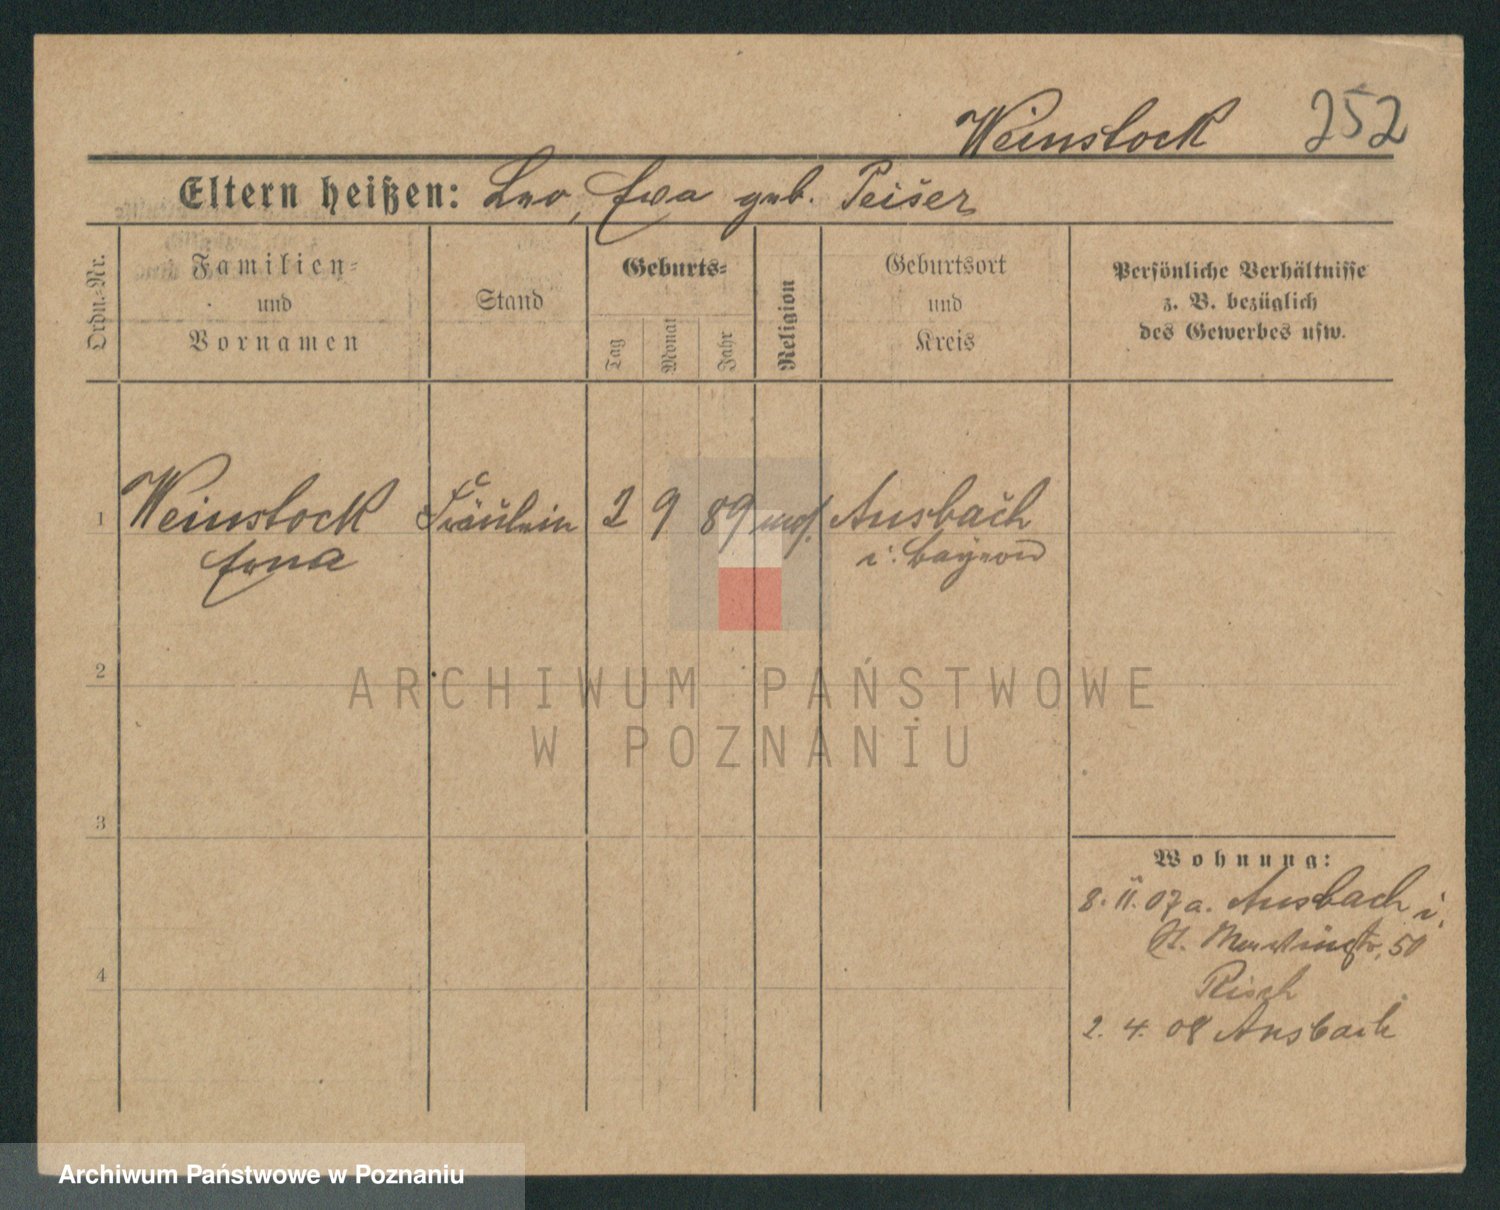 Weinstock 252
Eltern heißen: Leo, Ewa geb. Peiser
Ordn.-Nr.
Familien-
und
Vornamen
Stand
Geburts-
Tag
Monat
Jahr
Religion
Geburtsort
und
Kreis
Persönliche Verhältnisse
z. B. bezüglich
des Gewerbes usw.
1 Weinstock Fräulein 2 9 89 mos. Ansbach
Erna i. Bayern
2
3
4
Wohnung:
8. 11. 07 a. Ansbach i.
St. Martinstr. 50
Risch
2. 4. 08 Ansbach
ARCHIWUM PAŃSTWOWE
W POZNANIU
Archiwum Państwowe w Poznaniu